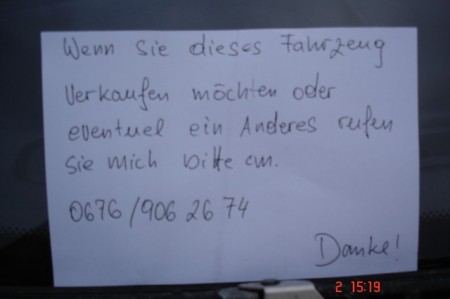 Wenn Sie dieses Fahrzeug
Verkaufen möchten oder
eventuel ein Anderes rufen
Sie mich bitte an.
0676/906 26 74
Danke!
2 15:19